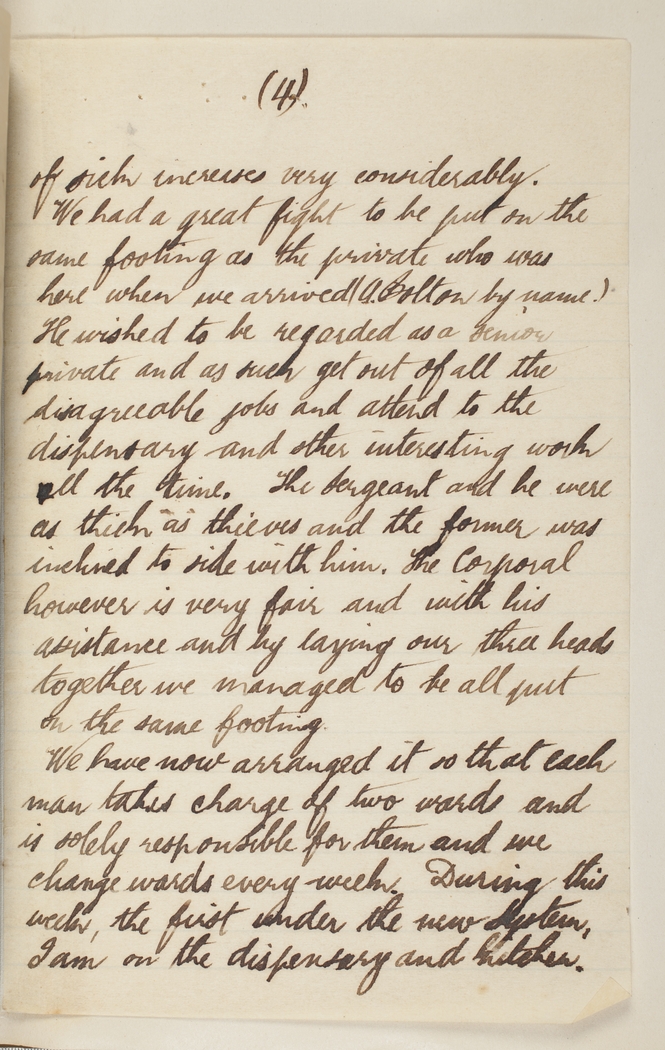 (4).
of sick increases very considerably.
We had a great fight to be put on the
same footing as the private who was
here when we arrived (A. Bolton by name.)
He wished to be regarded as a senior
private and as such get out of all the
disagreeable jobs and attend to the
dispensary and other interesting work
all the time. The sergeant and he were
as thick as thieves and the former was
inclined to side with him. The Corporal
however is very fair and with his
assistance and by laying our three heads
together we managed to be all put
on the same footing.
We have now arranged it so that each
man takes charge of two wards and
is solely responsible for them and we
change wards every week. During this
week, the first under the new system,
I am on the dispensary and kitchen.